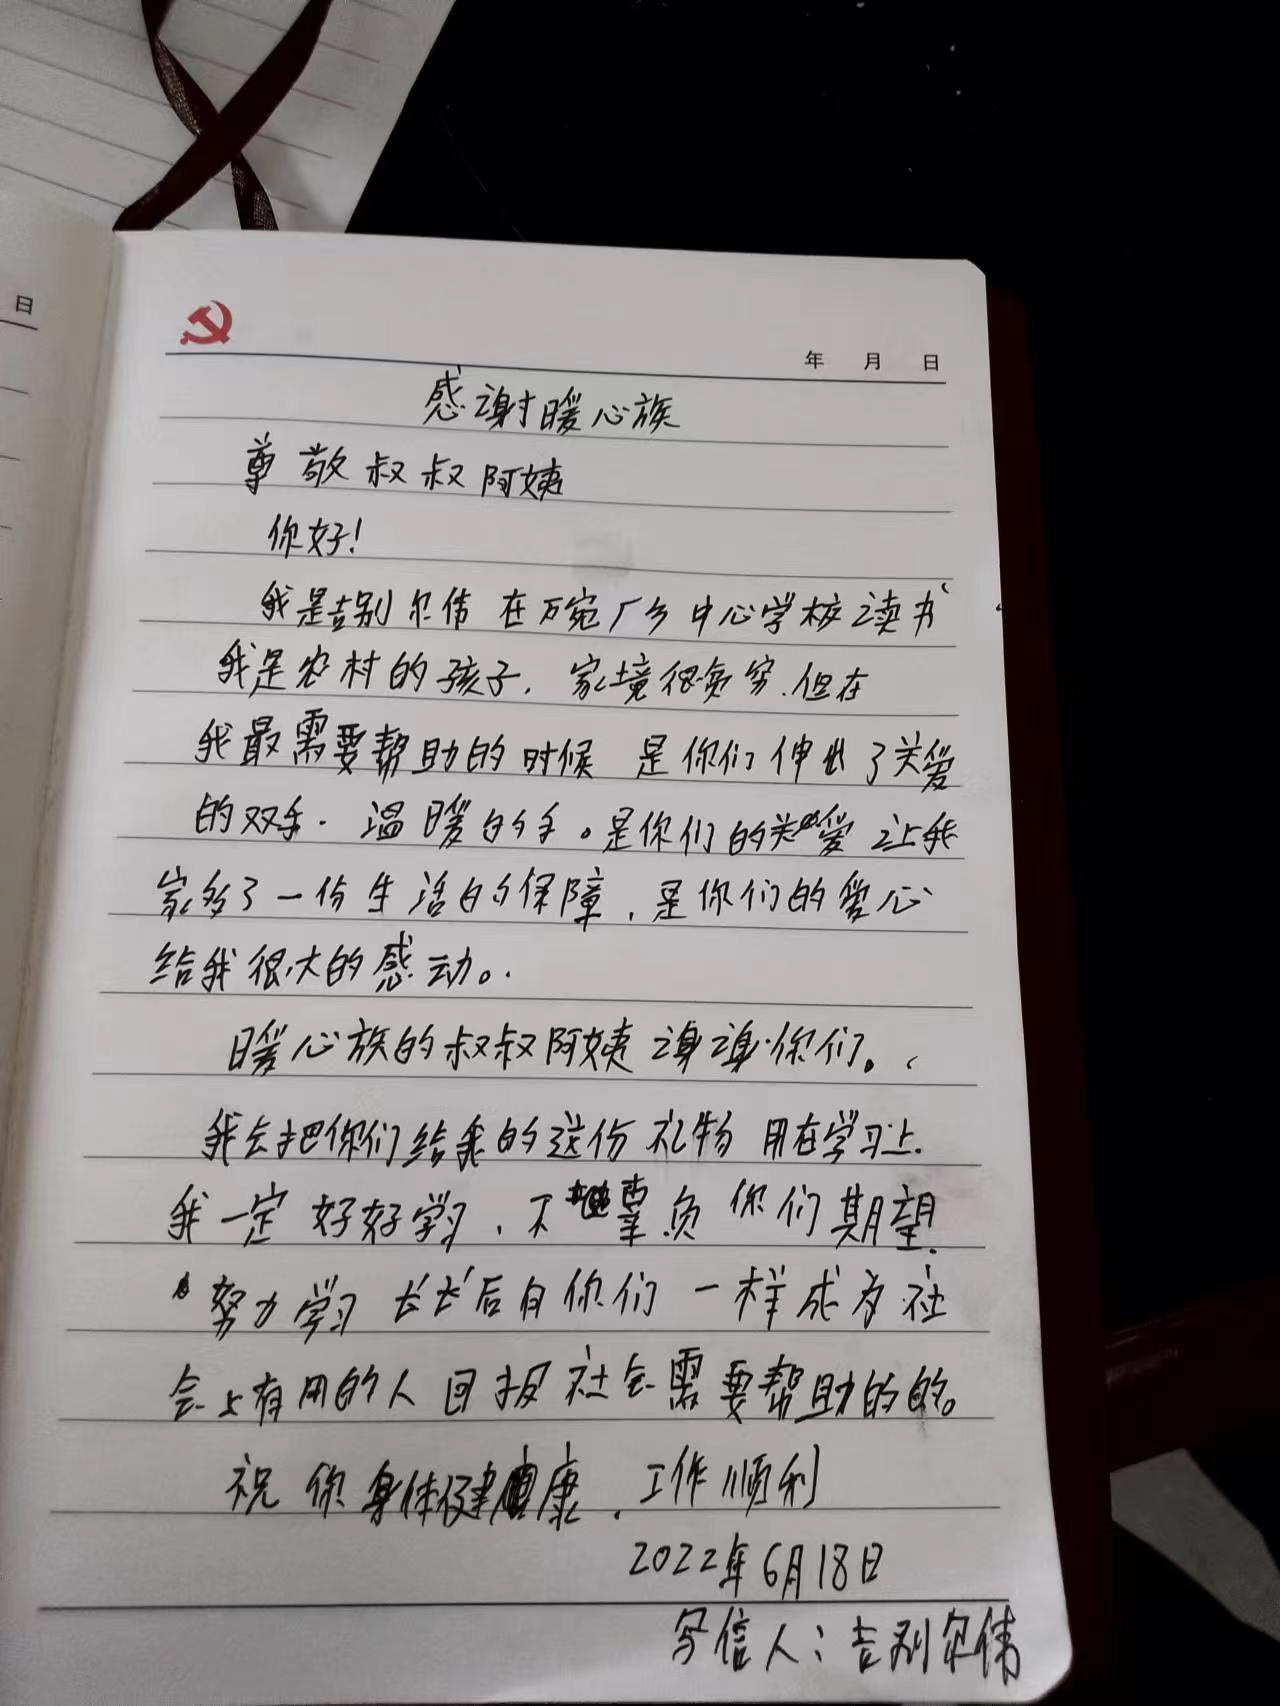 日
年 月 日
感谢暖心族
尊敬叔叔阿姨
你好!
我是吉别尔伟 在万宛厂乡中心学校读书
我是农村的孩子, 家境很贫穷.但在
我最需要帮助的时候 是你们伸出了关爱
的双手. 温暖的手。是你们的关爱 让我
家多了一份生活的保障, 是你们的爱心
给我很大的感动。
暖心族的叔叔阿姨 谢谢你们。
我会把你们给我的这份 礼物 用在学习上.
我一定 好好学习, 不辜负 你们期望.
努力学习 长长后向你们 一样成为社
会上有用的人 回报社会需要帮助的的。
祝 你身体健康, 工作顺利
2022年6月18日
写信人: 吉别尔伟